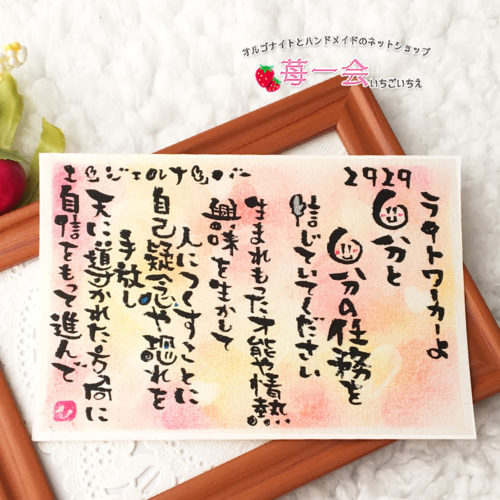 オルゴナイトとハンドメイドのネットショップ
苺一会
いちごいちえ
2929
ライトワーカーよ
自分と
自分の任務を
信じていてください
生まれもった才能や情熱
興味を生かして
人につくすことに
自己疑念や恐れを
手放し
天に導かれた方向に
自信をもって進んで
エンジェルナンバー